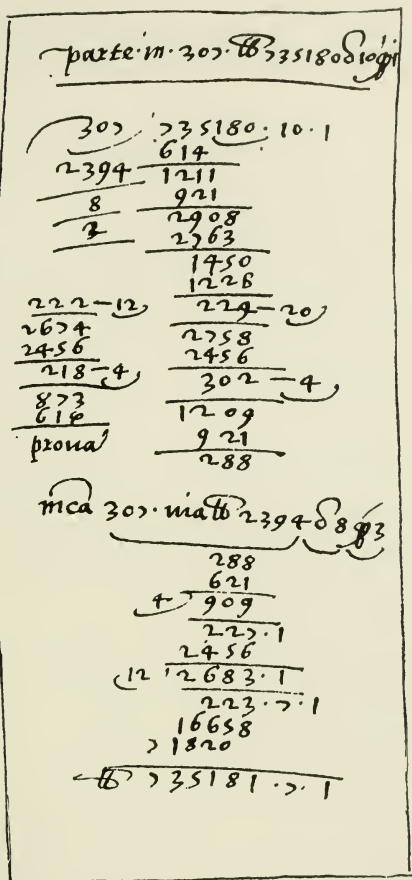 parte·in·307·℔735180 δ 10 pi
307 735180·10·1
614
2394 1211
8 921
2 2908
2763
1450
1228
222—12 224—20
2674 2758
2456 2456
218—4 302—4
873 1209
614 921
proua 288
mca 307·uia ℔ 2394 δ 8 p 3
288
621
4 909
227·1
2456
12 2683·1
223·7·1
16658
71820
℔ 735181·7·1